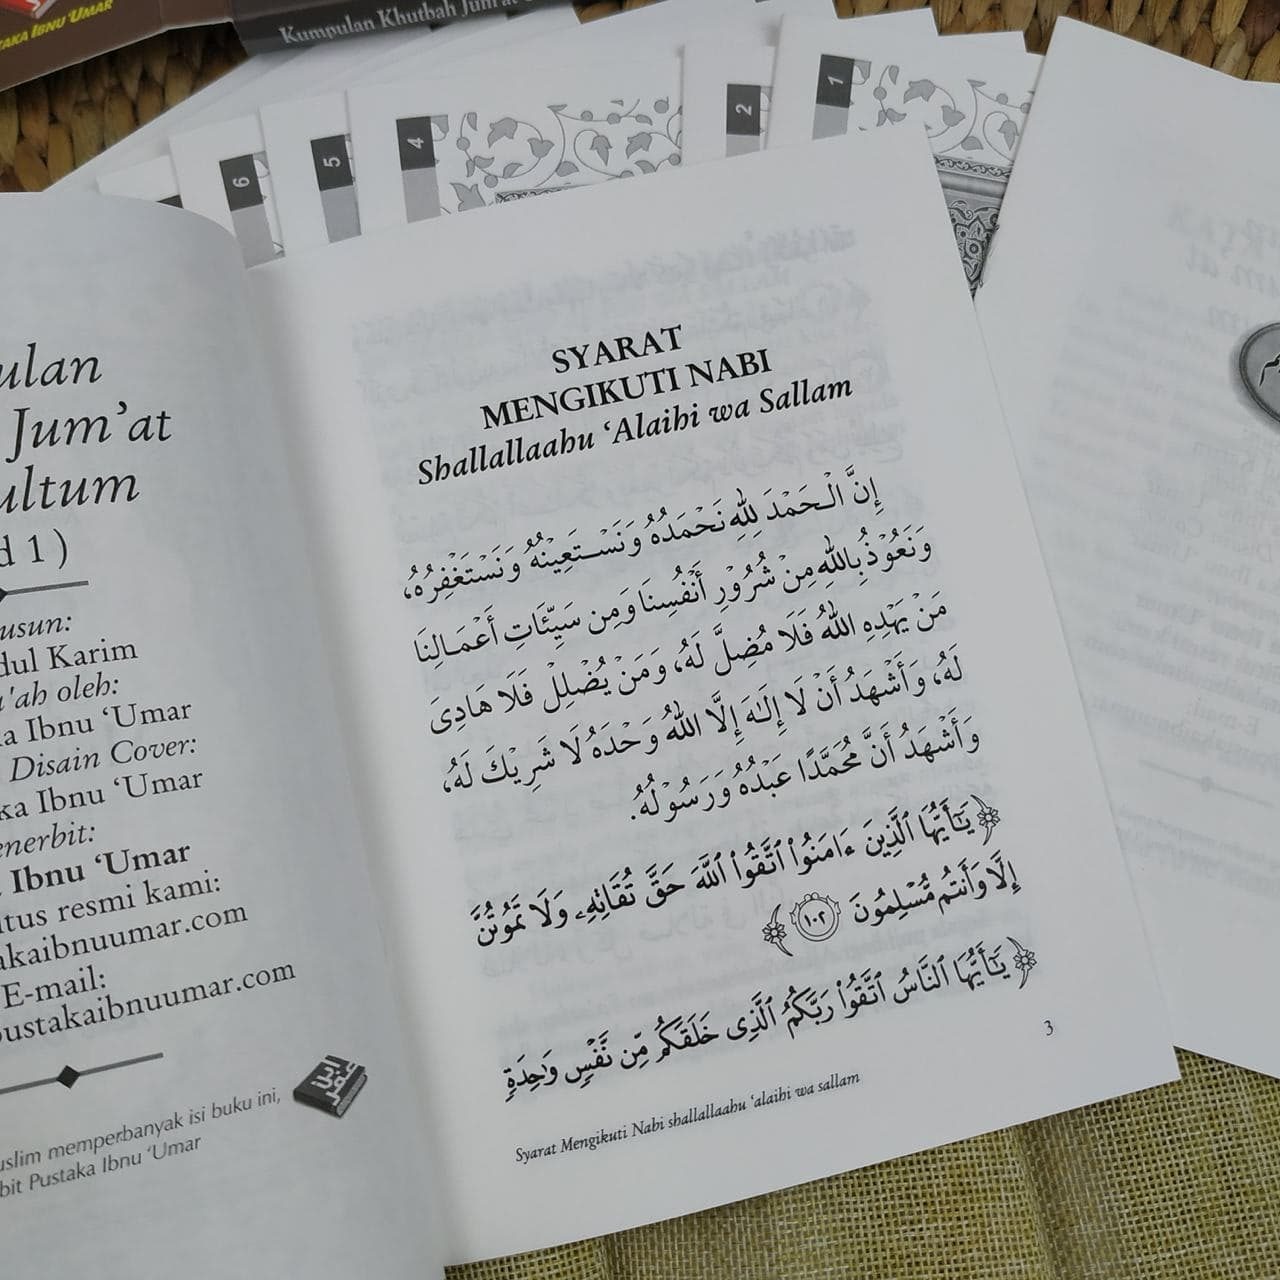 TAKA IBNU 'UMAR
Kumpulan Khutbah Jum'at
6
5
4
2
1
ulan
Jum'at
ultum
d 1 )
usun:
dul Karim
'ah oleh:
a Ibnu 'Umar
Disain Cover:
ka Ibnu 'Umar
enerbit:
Ibnu 'Umar
itus resmi kami:
akaibnuumar.com
E-mail:
pustakaibnuumar.com
uslim memperbanyak isi buku ini,
bit Pustaka Ibnu 'Umar
ابن
عمر
SYARAT
MENGIKUTI NABI
Shallallaahu 'Alaihi wa Sallam
إِنَّ الْحَمْدَ لِلهِ نَحْمَدُهُ وَنَسْتَعِيْنُهُ وَنَسْتَغْفِرُهُ،
وَنَعُوْذُ بِاللهِ مِنْ شُرُوْرِ أَنْفُسِنَا وَمِن سَيِّئَاتِ أَعْمَالِنَا
مَنْ يَهْدِهِ اللهُ فَلَا مُضِلَّ لَهُ، وَمَنْ يُضْلِلْ فَلَا هَادِىَ
لَهُ، وَأَشْهَدُ أَنْ لَا إِلَٰهَ إِلَّا اللهُ وَحْدَهُ لَا شَرِيْكَ لَهُ،
وَأَشْهَدُ أَنَّ مُحَمَّدًا عَبْدُهُ وَرَسُوْلُهُ.
﴿ يَٰٓأَيُّهَا ٱلَّذِينَ ءَامَنُوا۟ ٱتَّقُوا۟ ٱللَّهَ حَقَّ تُقَاتِهِۦ وَلَا تَمُوتُنَّ
إِلَّا وَأَنتُم مُّسْلِمُونَ ١٠٢ ﴾
﴿ يَٰٓأَيُّهَا ٱلنَّاسُ ٱتَّقُوا۟ رَبَّكُمُ ٱلَّذِى خَلَقَكُم مِّن نَّفْسٍ وَٰحِدَةٍ
3
Syarat Mengikuti Nabi shallallaahu 'alaihi wa sallam